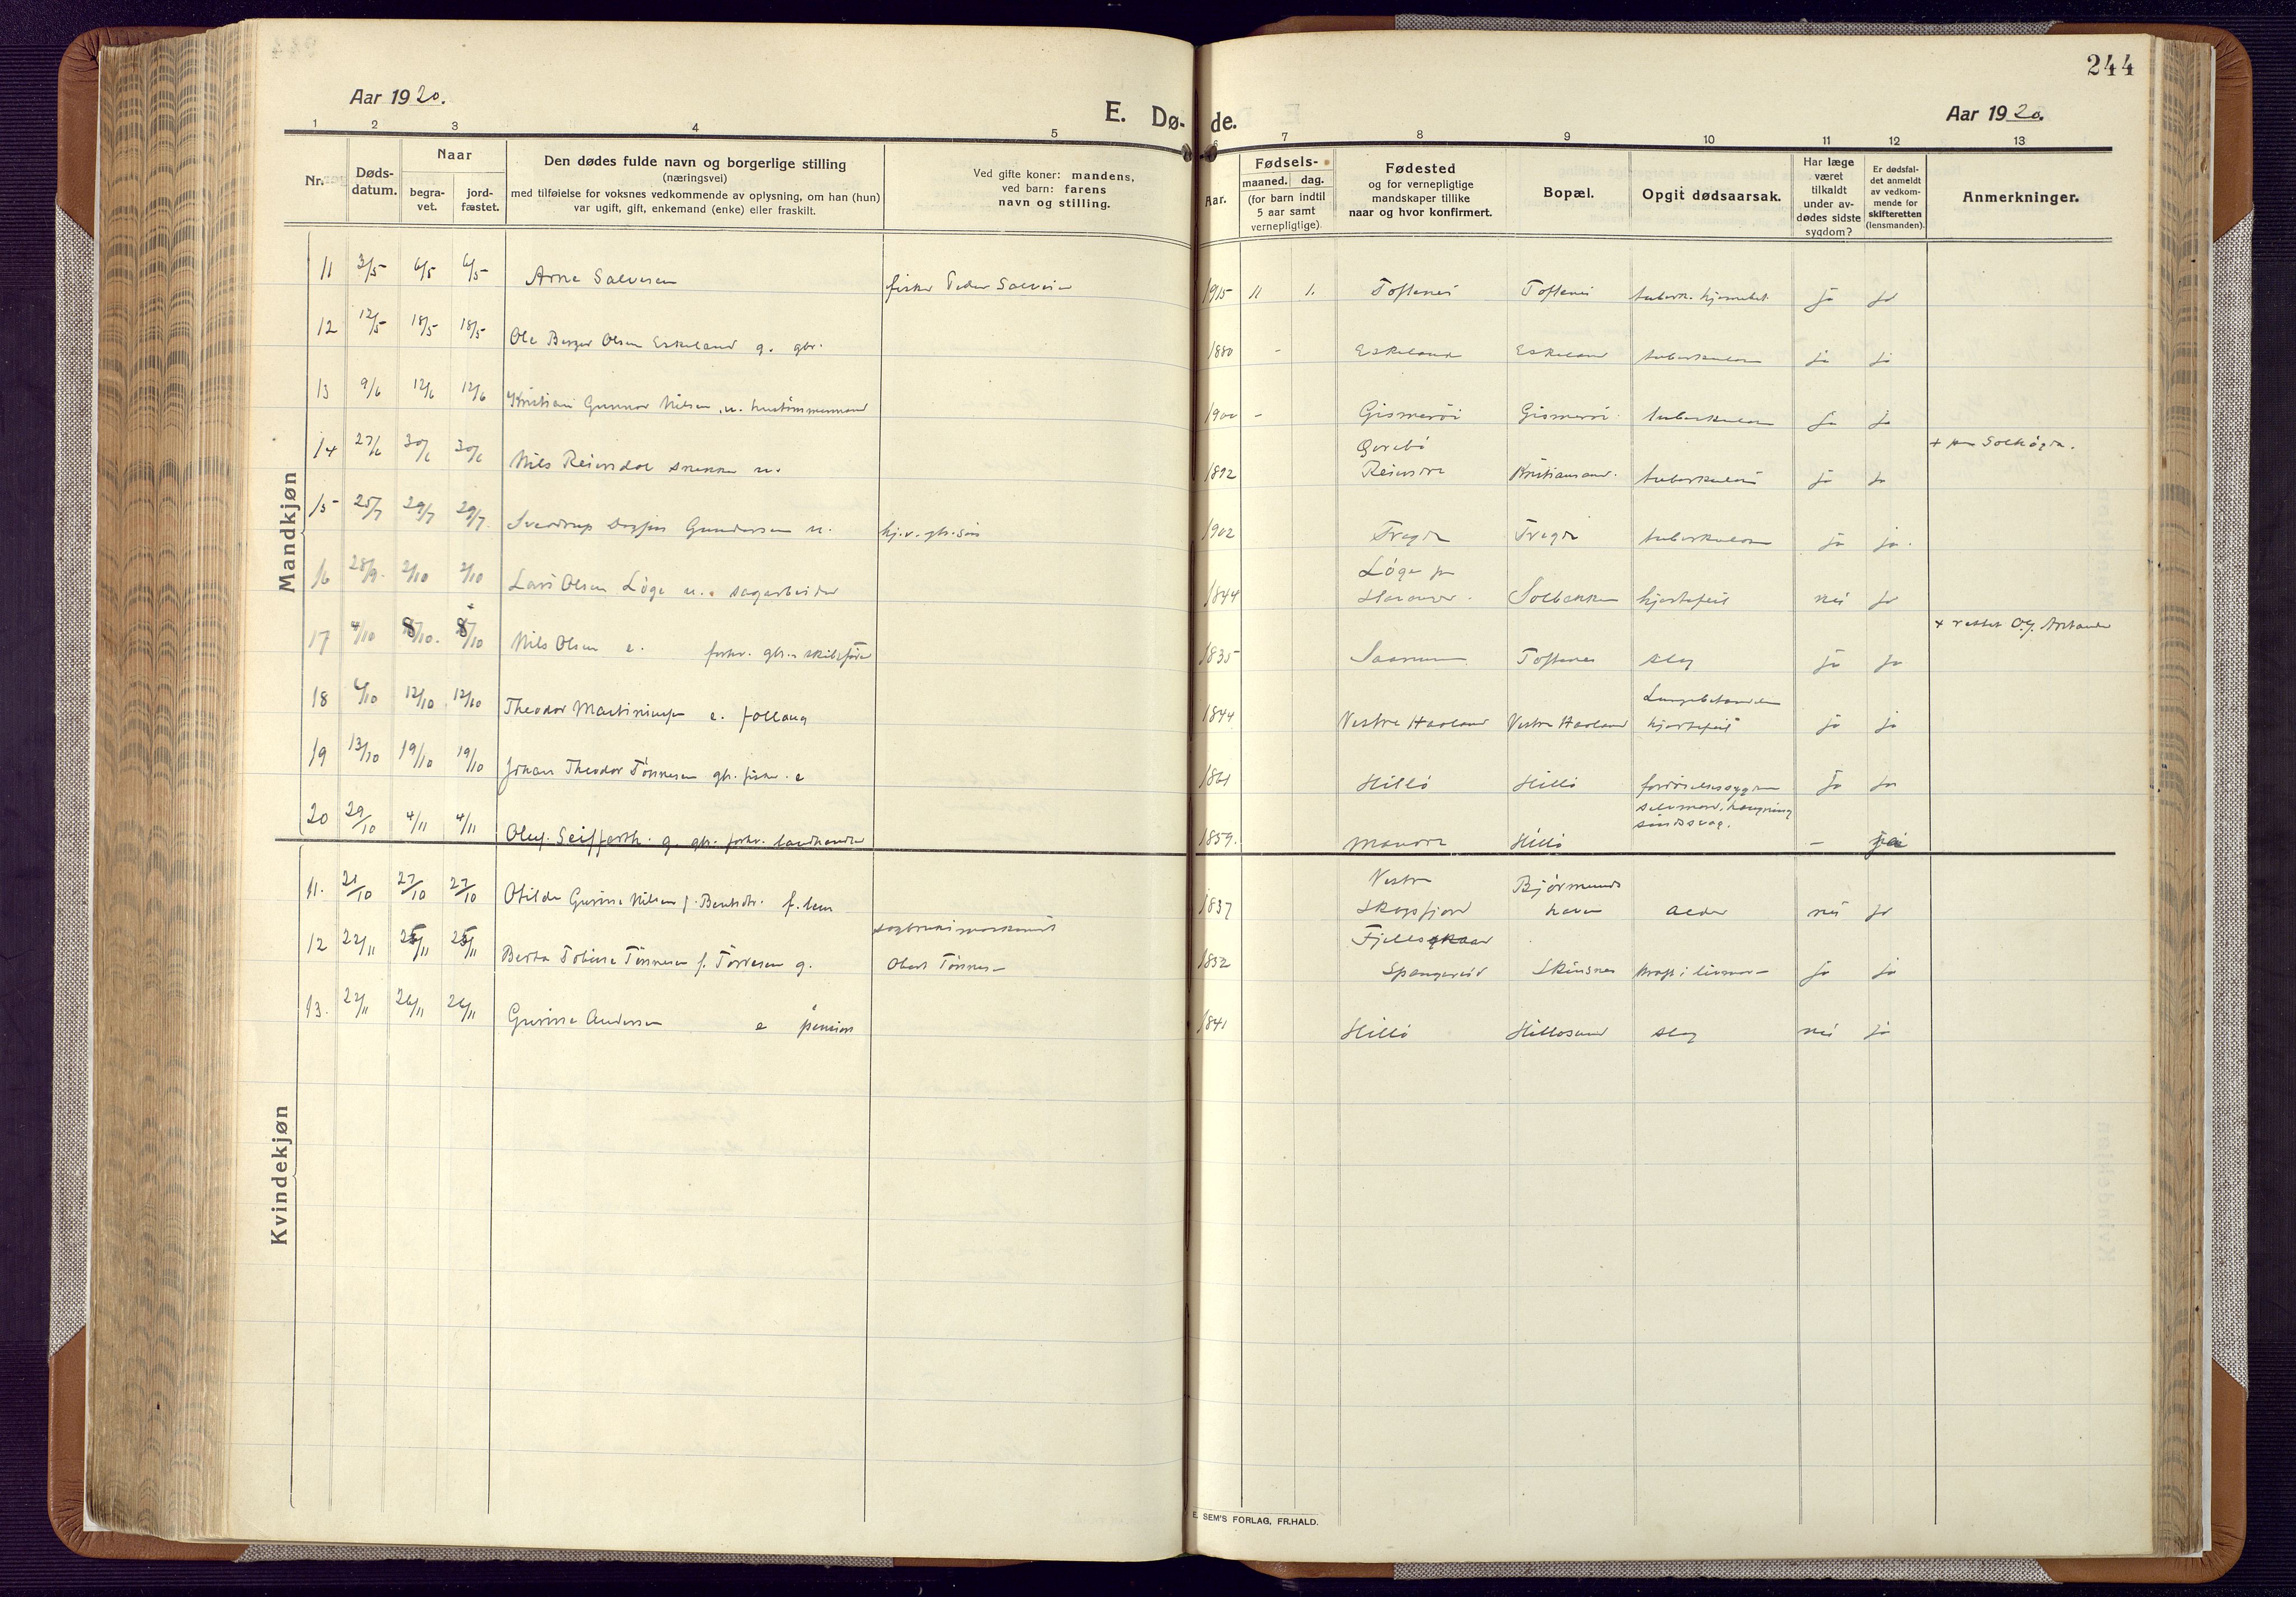 244
Aar 1920.
E. Dø-
de.
Aar 1920.
1 2 3 4 5 6 7 8 9 10 11 12 13
Nr.
Døds-
datum.
Naar
begra-
vet.
jord-
fæstet.
Den dødes fulde navn og borgerlige stilling
(næringsvei)
med tilføielse for voksnes vedkommende av oplysning, om han (hun)
var ugift, gift, enkemand (enke) eller fraskilt.
Ved gifte koner: mandens,
ved barn: farens
navn og stilling.
Aar.
Fødsels-
maaned. dag.
(for barn indtil
5 aar samt
vernepligtige)
Fødested
og for vernepligtige
mandskaper tillike
naar og hvor konfirmert.
Bopæl.
Opgit dødsaarsak.
Har læge
været
tilkaldt
under av-
dødes sidste
sygdom?
Er dødsfal-
det anmeldt
av vedkom-
mende for
skifteretten
(lensmanden).
Anmerkninger.
Mandkjøn
11 3/5 6/5 6/5 Arne Salvesen fisker Peder Salvesen 1915 11 1. Toftenes Toftenes tuberk. hjernebet. ja ja
12 12/5 18/5 18/5 Ole Berger Olsen Eskeland g. gbr. 1880 - Eskeland Eskeland tuberkulose ja ja
13 9/6 12/6 12/6 Kristian Gunnar Nilsen u. hustømmermand 1900 - Gismerøi Gismerøi tuberkulose ja ja
14 27/6 30/6 30/6 Nils Reiersdal snekker u. 1892 Øvrebø
Reiersdal Kristiansand. tuberkulose ja ja + paa Solhøgda.
15 25/7 29/7 29/7 Sverdrup Gundersen u. hj.v. gbr. søn 1902 Tregde Tregde tuberkulose ja ja.
16 28/9. 2/10 2/10 Lars Olsen Løge u. sagarbeider 1844 Løge
Solbakken hjertefeil nei ja
17 4/10 8/10. 8/10 Nils Olsen e. forhv. gbr. skibsfører 1835 Saanum Toftenes slag ja ja + rettet
18 6/10 12/10 12/10 Theodor Martiniusen e. føllaug 1844 Vestre Haaland Vestre Haaland Lungebetændelse
hjertefeil ja ja
19 13/10 19/10 19/10 Johan Theodor Tønnesen gbr. fisker. e 1861 Hillø Hillø fordøielsessygdom ja ja
20 29/10 4/11 4/11 Oluf. Seifferth. g. gbr. forhv. landhandler 1859. Mandal Hillø selvmord, hængning
sindssvag. - ja
Kvindekjøn
11. 21/10 27/10 27/10 Otilde Gurine Nilsen f. Berntsdtr. f. lem 1837 Vestre
Skogsfjord Bjørnunds
havn alder nei ja
12 22/11 25/11 25/11 Berta Tobine Tønnesen f. Torresen g. sagbruksmaskinist
Obert Tønnesen 1852 Fjellsgkaar
Spangereid Skinsnes kræft i livmor ja ja
13. 22/11 26/11 26/11 Gurine Andersen e pension 1841 Hillø Hillosund slag nei ja
E. SEM'S FORLAG, FR.HALD.